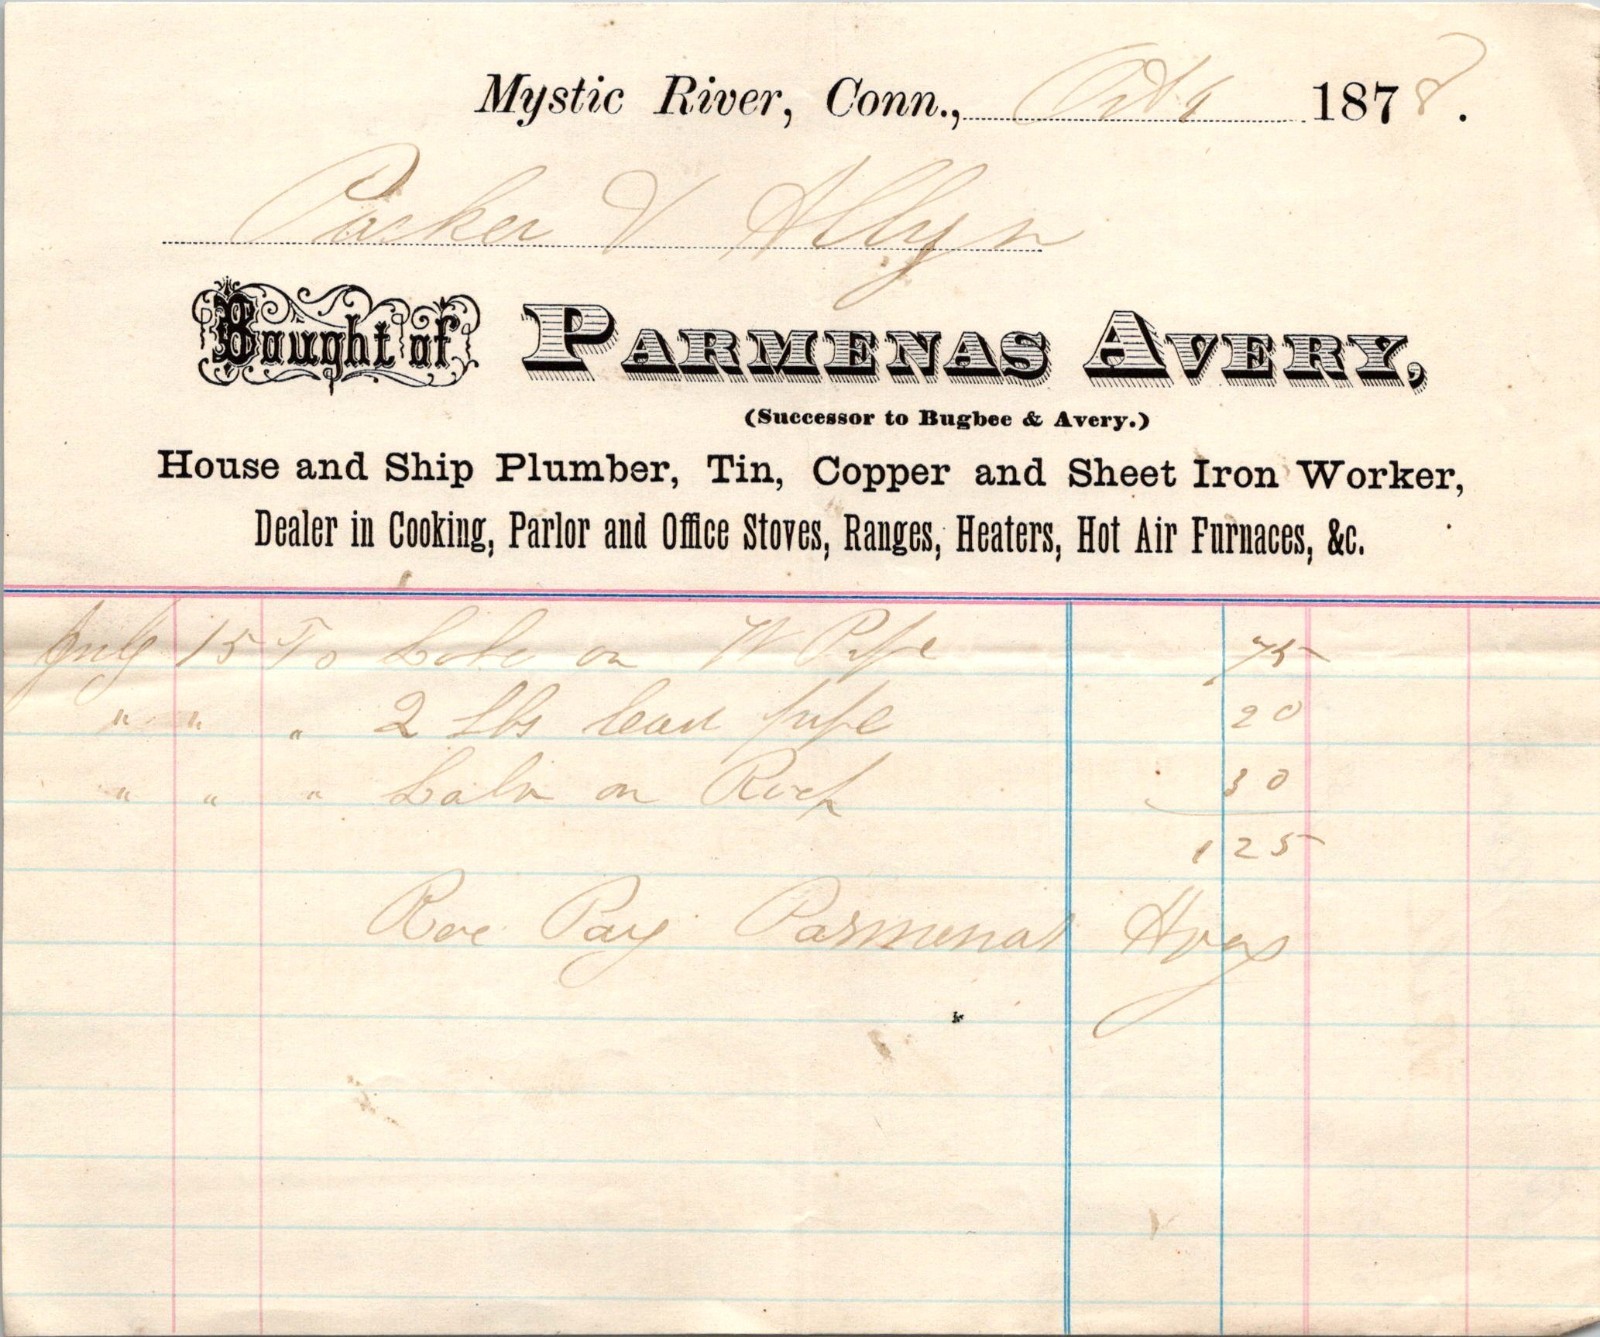 Mystic River, Conn., Oct 9 1878.
Parker & Allyn
Bought of PARMENAS AVERY,
(Successor to Bugbee & Avery.)
House and Ship Plumber, Tin, Copper and Sheet Iron Worker,
Dealer in Cooking, Parlor and Office Stoves, Ranges, Heaters, Hot Air Furnaces, &c.
July 15 To on W Pipe 75
" " " 2 Lbs lead pipe 20
" " " on 30
1 25
Rec Pay Parmenas